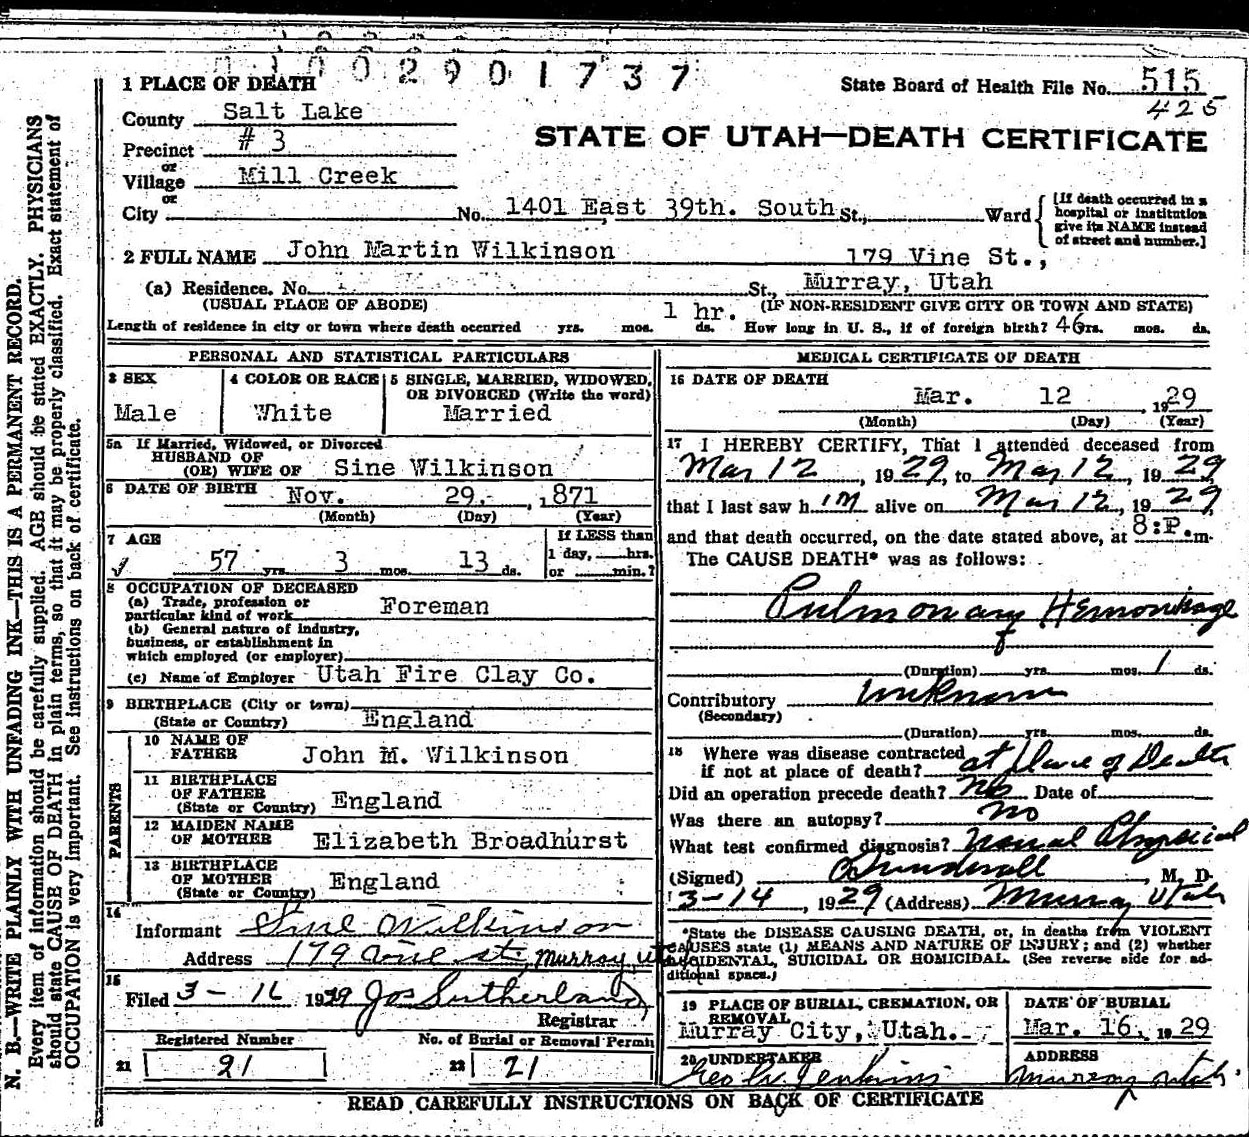 0 1 0 0 2 9 0 1 7 3 7
1 PLACE OF DEATH
State Board of Health File No. 515
425
County Salt Lake
STATE OF UTAH—DEATH CERTIFICATE
Precinct # 3
or
Village Mill Creek
or
City No. 1401 East 39th. South St., Ward
[If death occurred in a
hospital or institution
give its NAME instead
of street and number.]
2 FULL NAME John Martin Wilkinson 179 Vine St.,
(a) Residence. No. St., Murray, Utah
(USUAL PLACE OF ABODE) (IF NON-RESIDENT GIVE CITY OR TOWN AND STATE)
Length of residence in city or town where death occurred yrs. mos. 1 hr. ds. How long in U. S., if of foreign birth? 46 yrs. mos. ds.
PERSONAL AND STATISTICAL PARTICULARS
3 SEX 4 COLOR OR RACE 5 SINGLE, MARRIED, WIDOWED,
OR DIVORCED (Write the word)
Male White Married
5a If Married, Widowed, or Divorced
HUSBAND OF
(OR) WIFE OF Sine Wilkinson
6 DATE OF BIRTH Nov. 29. ,871
(Month) (Day) (Year)
7 AGE If LESS than
57 yrs. 3 mos. 13 ds. 1 day, hrs.
or min.?
8 OCCUPATION OF DECEASED
(a) Trade, profession or
particular kind of work Foreman
(b) General nature of industry,
business, or establishment in
which employed (or employer)
(c) Name of Employer Utah Fire Clay Co.
9 BIRTHPLACE (City or town)
(State or Country) England
PARENTS
10 NAME OF
FATHER John M. Wilkinson
11 BIRTHPLACE
OF FATHER
(State or Country) England
12 MAIDEN NAME
OF MOTHER Elizabeth Broadhurst
13 BIRTHPLACE
OF MOTHER
(State or Country) England
14
Informant Sine Wilkinson
Address 179 Vine st, Murray, Ut
15
Filed 3-16 1929 Jos Sutherland
Registrar
Registered Number No. of Burial or Removal Permit
21 21 22 21
MEDICAL CERTIFICATE OF DEATH
16 DATE OF DEATH
Mar. 12 , 1929
(Month) (Day) (Year)
17 I HEREBY CERTIFY, That I attended deceased from
Mar 12, 1929, to Mar 12, 1929
that I last saw him alive on Mar 12, 1929
and that death occurred, on the date stated above, at 8:P.m.
The CAUSE DEATH* was as follows:
Pulmonary Hemorrhage
(Duration) yrs. mos. 1 ds.
Contributory unknown
(Secondary)
(Duration) yrs. mos. ds.
18 Where was disease contracted
if not at place of death? at place of Death
Did an operation precede death? No Date of
Was there an autopsy? no
What test confirmed diagnosis? usual Physical
(Signed) , M. D.
3-14, 1929 (Address) Murray Utah
*State the DISEASE CAUSING DEATH, or, in deaths from VIOLENT
CAUSES state (1) MEANS AND NATURE OF INJURY; and (2) whether
ACCIDENTAL, SUICIDAL OR HOMICIDAL. (See reverse side for ad-
ditional space.)
19 PLACE OF BURIAL, CREMATION, OR
REMOVAL
Murray City, Utah.
DATE OF BURIAL
Mar. 16, 1929
20 UNDERTAKER
Geo W. Jenkins
ADDRESS
Murray Utah
READ CAREFULLY INSTRUCTIONS ON BACK OF CERTIFICATE
N. B.—WRITE PLAINLY WITH UNFADING INK—THIS IS A PERMANENT RECORD.
Every item of information should be carefully supplied. AGE should be stated EXACTLY. PHYSICIANS
should state CAUSE OF DEATH in plain terms, so that it may be properly classified. Exact statement of
OCCUPATION is very important. See instructions on back of certificate.